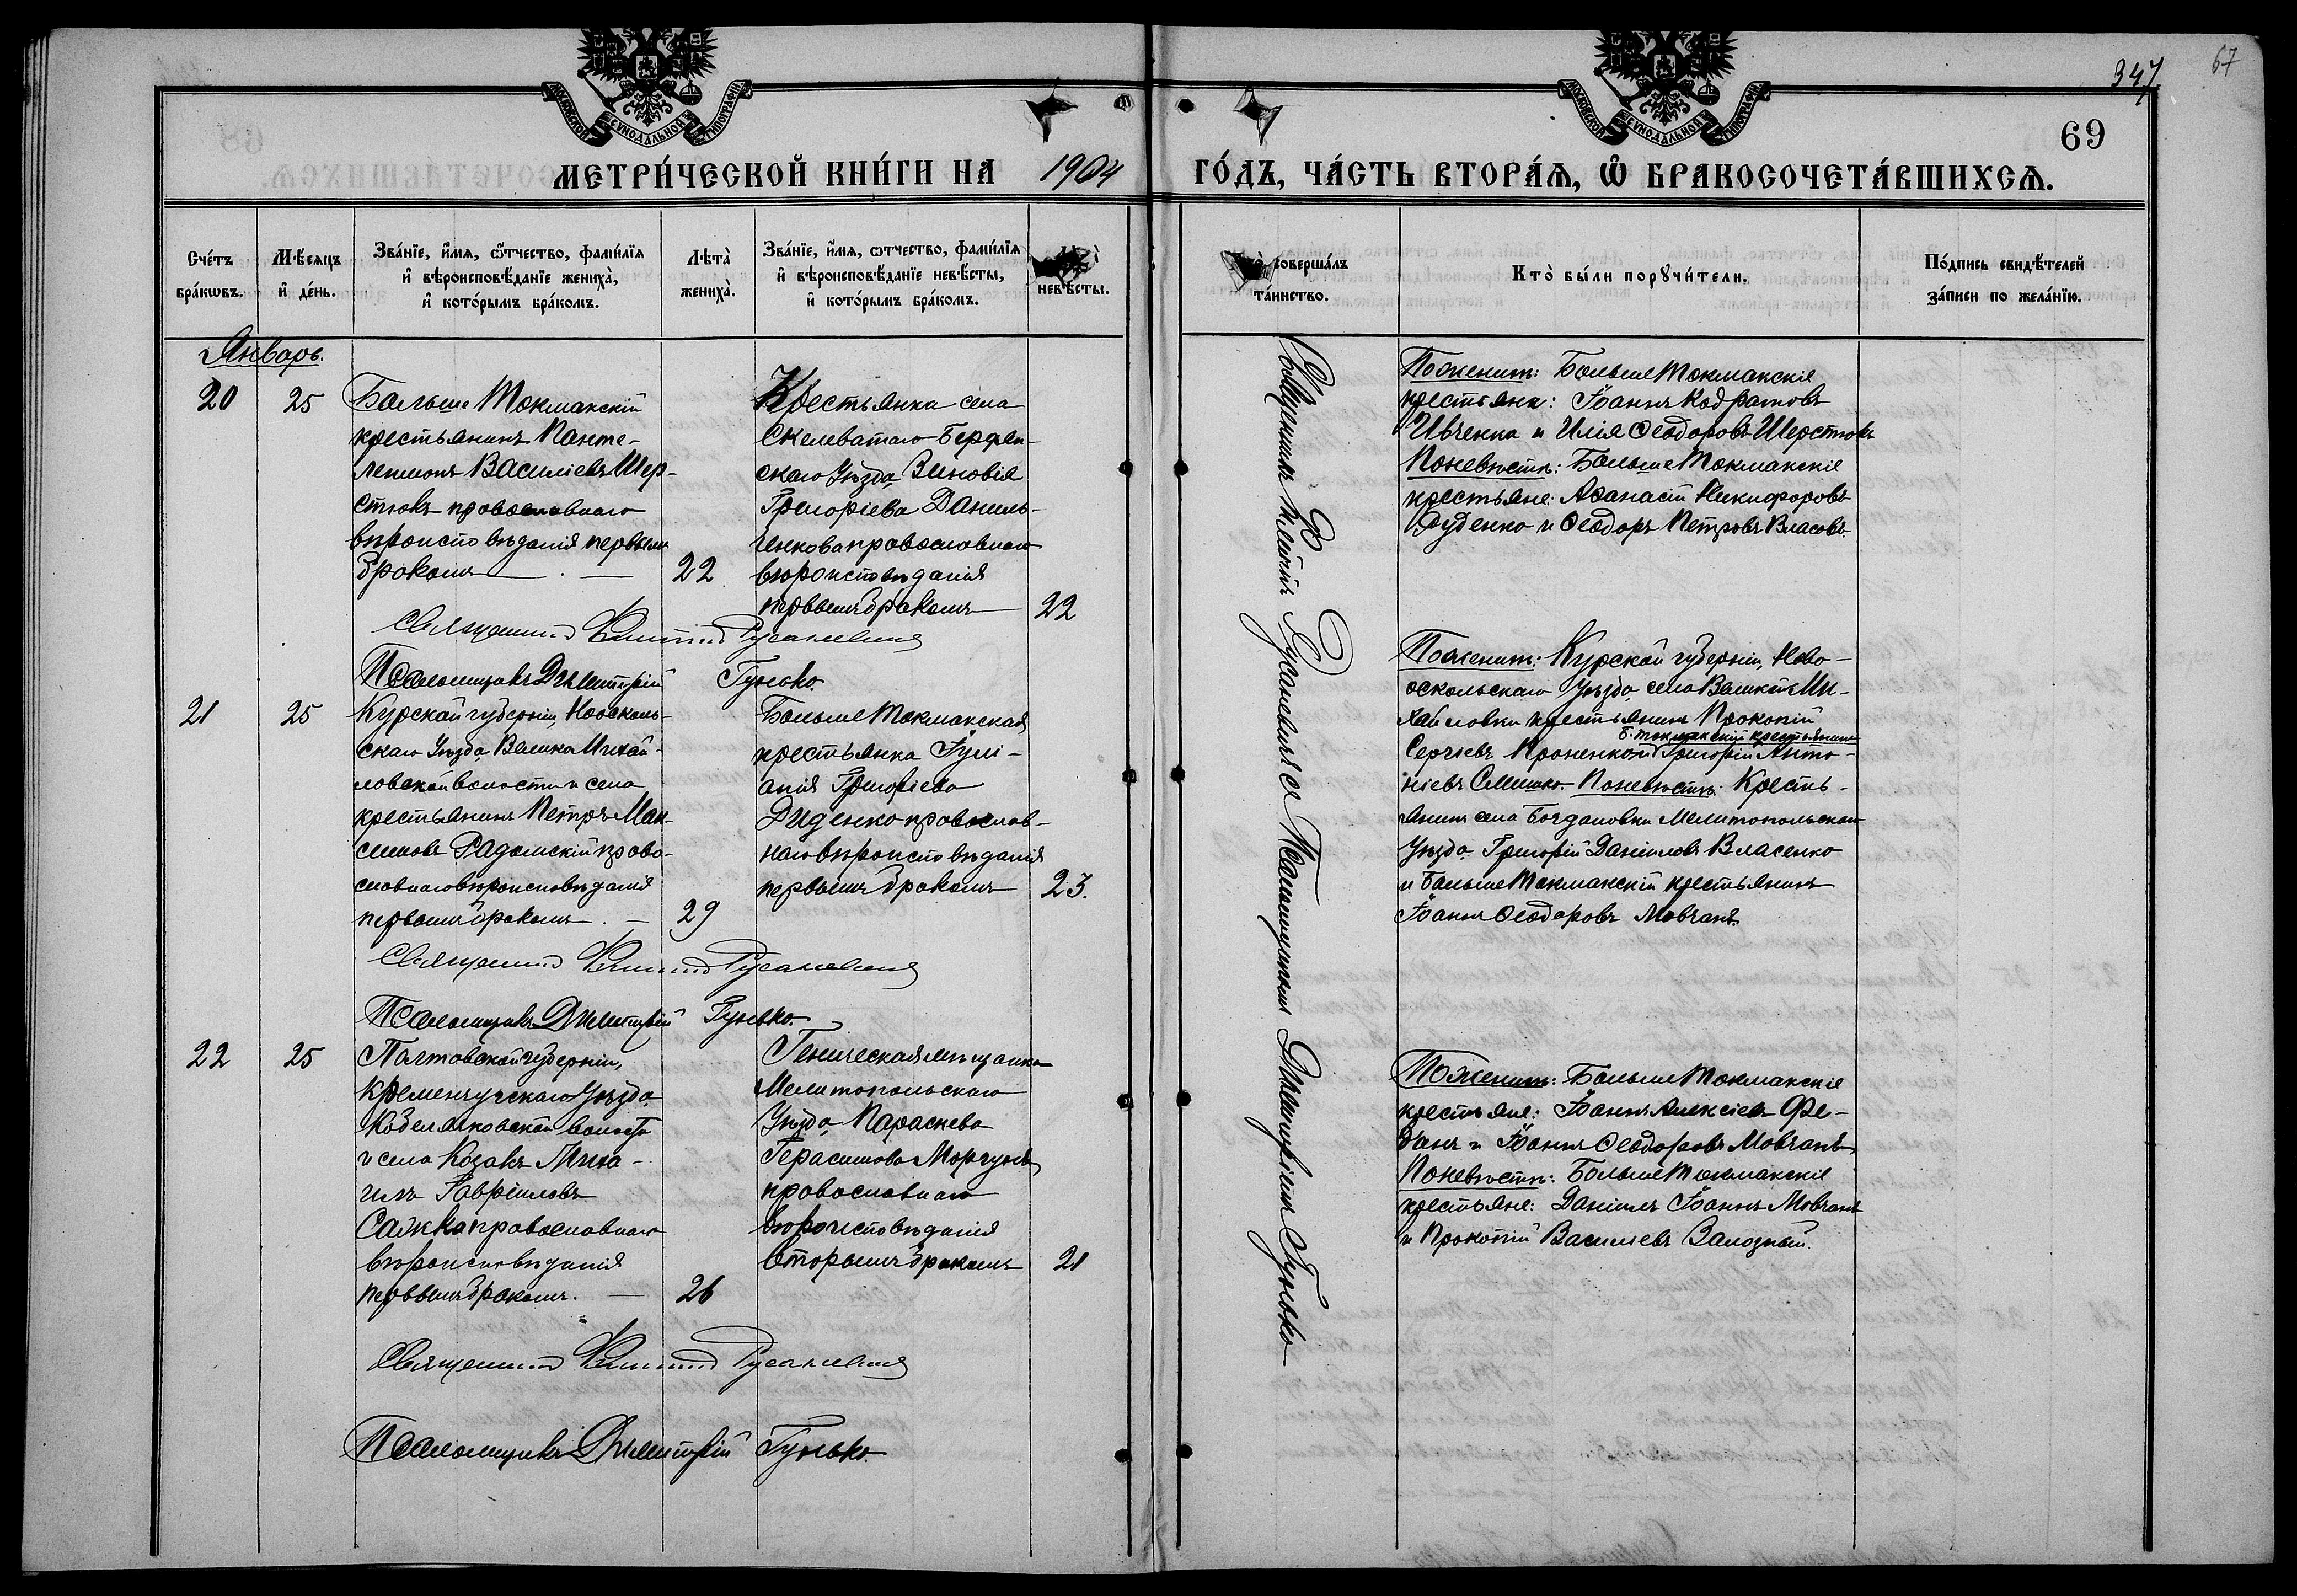 347
67
69
МОСКОВСКОЙ СѴНОДАЛЬНОЙ ТИПОГРАФІИ
МОСКОВСКОЙ СѴНОДАЛЬНОЙ ТИПОГРАФІИ
МЕТРИ́ЧЕСКОЙ КНИ́ГИ НА 1904 ГО́ДЪ, ЧА́СТЬ ВТОРА́Ѧ, Ѽ БРАКОСОЧЕТА́ВШИХСѦ.
Сче́тъ
бра́кѡвъ.
Мѣ́сяцъ
и҆ де́нь.
Зва́нїе, и҆́мѧ, ѻ҆́тчество, фамі́лїѧ
и҆ вѣроисповѣ́данїе жениха̀,
и҆ кото́рымъ бра́комъ.
Лѣ́та̀
жениха̀.
Зва́нїе, и҆́мѧ, ѻтчество, фамі́лїѧ
и҆ вѣроисповѣ́данїе невѣ́сты,
и҆ кото́рымъ бра́комъ.
невѣ́сты.
соверша́лъ
та́инство.
Кто̀ бы́ли порꙋчи́тели.
По́дпись свидѣ́телей
за́писи по жела́нїю.
Январь.
20
25
Больше Токмакскій
крестьянинъ Панте-
леимонъ Василіевъ Шер-
стюкъ православнаго
вѣроисповѣданія первымъ
бракомъ
22
Крестьянка села
Скелеватаго Бердян-
скаго Уѣзда Зиновія
Григоріева Даниль-
ченкова православнаго
вѣроисповѣданія
первымъ бракомъ
22
Поженихѣ: Больше Токмакскіе
крестьяне: Іоаннъ Кодратовъ
Ивченко и Илія Ѳеодоровъ Шерстюкъ
Поневѣстѣ: Больше Токмакскіе
крестьяне: Аѳанасій Никифоровъ
Руденко и Ѳеодоръ Петровъ Власовъ.
Священникъ Русаневичъ
Псаломщикъ Димитрій Гунько.
21
25
Курской губерніи, Новооколь-
скаго Уѣзда, Велико Михай-
ловской волости и села
крестьянинъ Петръ Мак-
симовъ Радомскій право-
славнаго вѣроисповѣданія
первымъ бракомъ
29
Больше Токмакская
крестьянка Іулі-
анія Григоріева
Диденко православ-
наго вѣроисповѣданія
первымъ бракомъ
23.
Поженихѣ: Курской губерніи, Ново-
оскольскаго Уѣзда села Великой Ми-
хайловки крестьянинъ Прокопій
Б. Токмакскій крестьянинъ
Сергіевъ Кроненкой Григорій Анто-
ніевъ Семенько. Поневѣстѣ: Кресть-
янинъ села Богдановки Мелитопольскаго
Уѣзда Григорій Даніиловъ Власенко
и Больше Токмакскій крестьянинъ
Іоаннъ Ѳеодоровъ Мовчанъ.
Священникъ Русаневичъ
Псаломщикъ Димитрій Гунько.
22
25
Полтовской губерніи,
Кременчугскаго Уѣзда
Кобелячковской волости
и села Козакъ Миха-
илъ Гавріиловъ
Сажка православнаго
вѣроисповѣданія
первымъ бракомъ.
26
Геническая мѣщанка
Мелитопольскаго
Уѣзда Параскева
Герасимова Моргунъ
православнаго
вѣроисповѣданія
вторымъ бракомъ
21
Поженихѣ: Больше Токмакскіе
крестьяне: Іоаннъ Алексіевъ Фе-
 и Іоаннъ Ѳеодоровъ Мовчанъ
Поневѣстѣ: Больше Токмакскіе
крестьяне: Даніилъ Іоанновъ Мовчанъ
и Прокопій Василіевъ Залозный.
Священникъ Русаневичъ
Псаломщикъ Димитрій Гунько.
Священникъ Русаневичъ съ Псаломщикомъ Димитріемъ Гунько